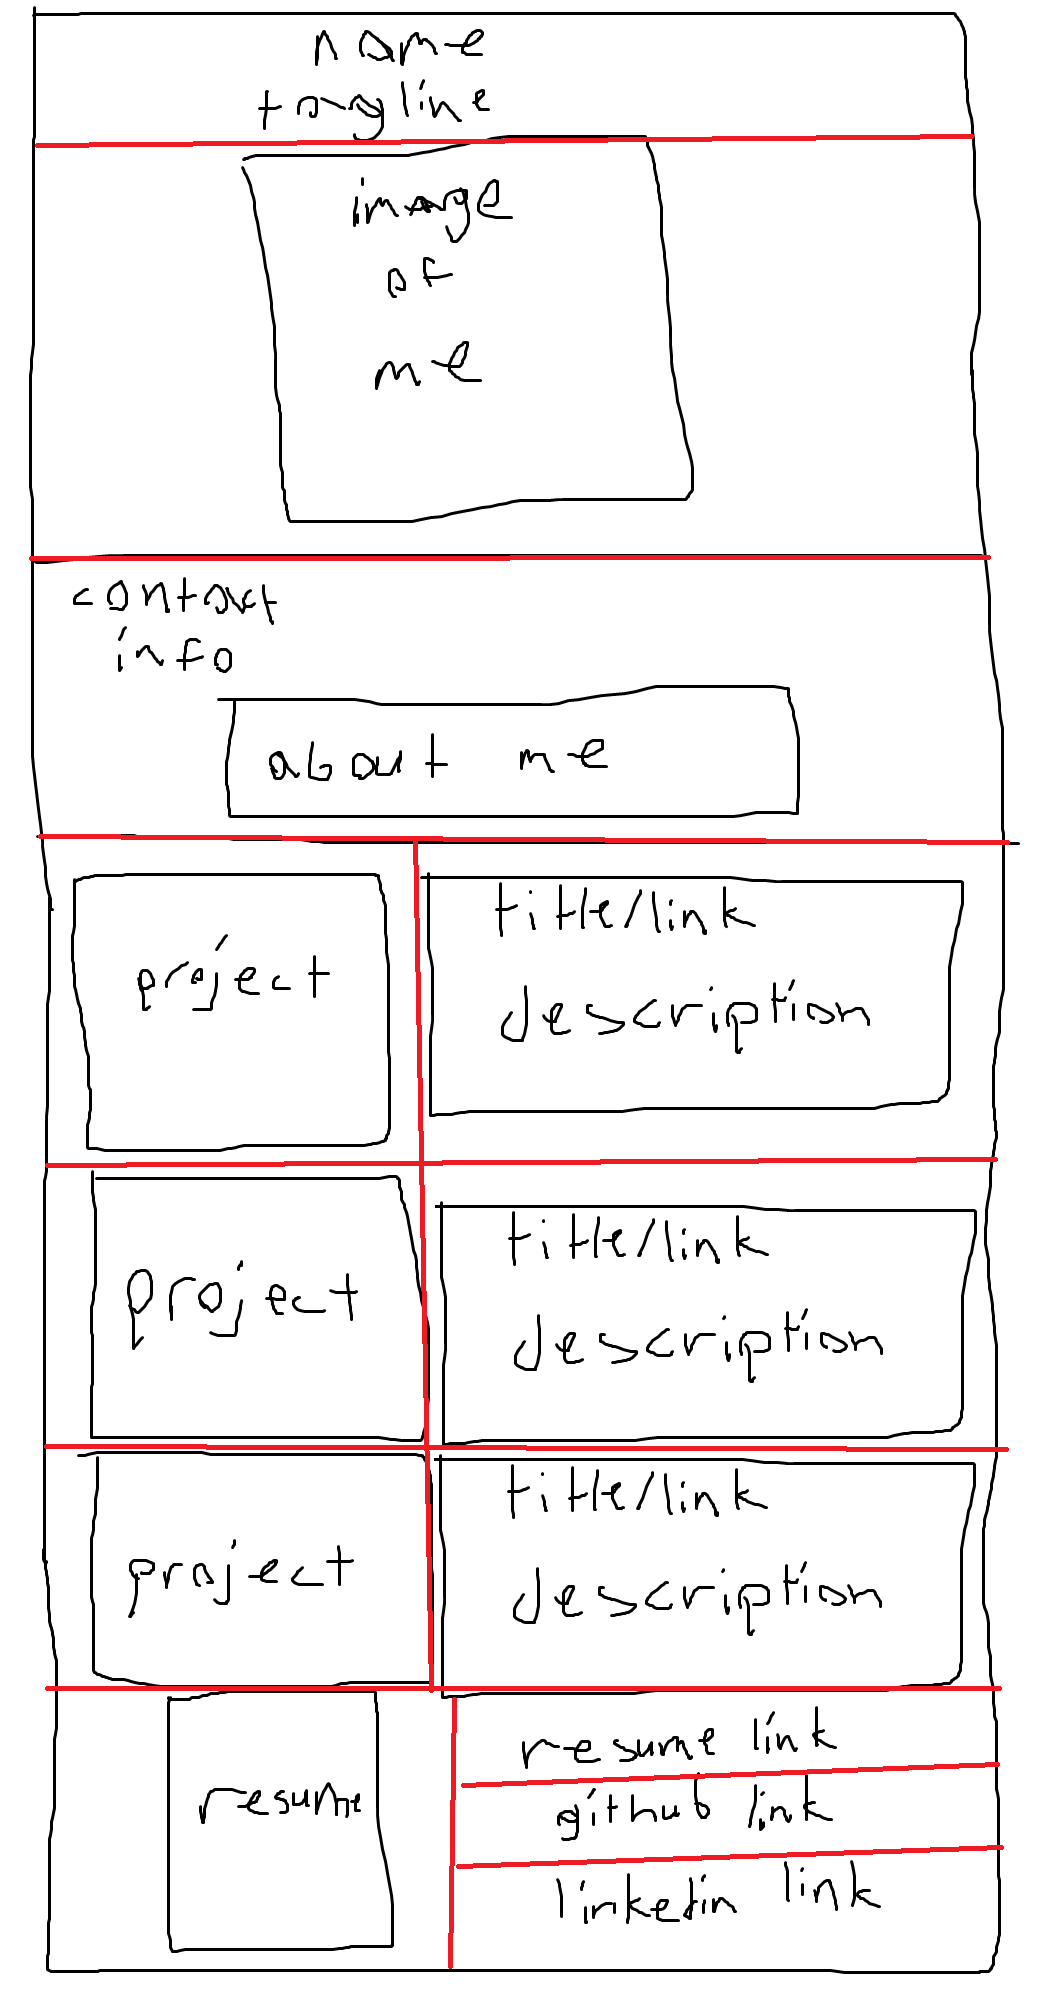 name
tagline
image
of
me
contact
info
about me
project
title/link
description
project
title/link
description
project
title/link
description
resume
resume link
github link
linkedin link